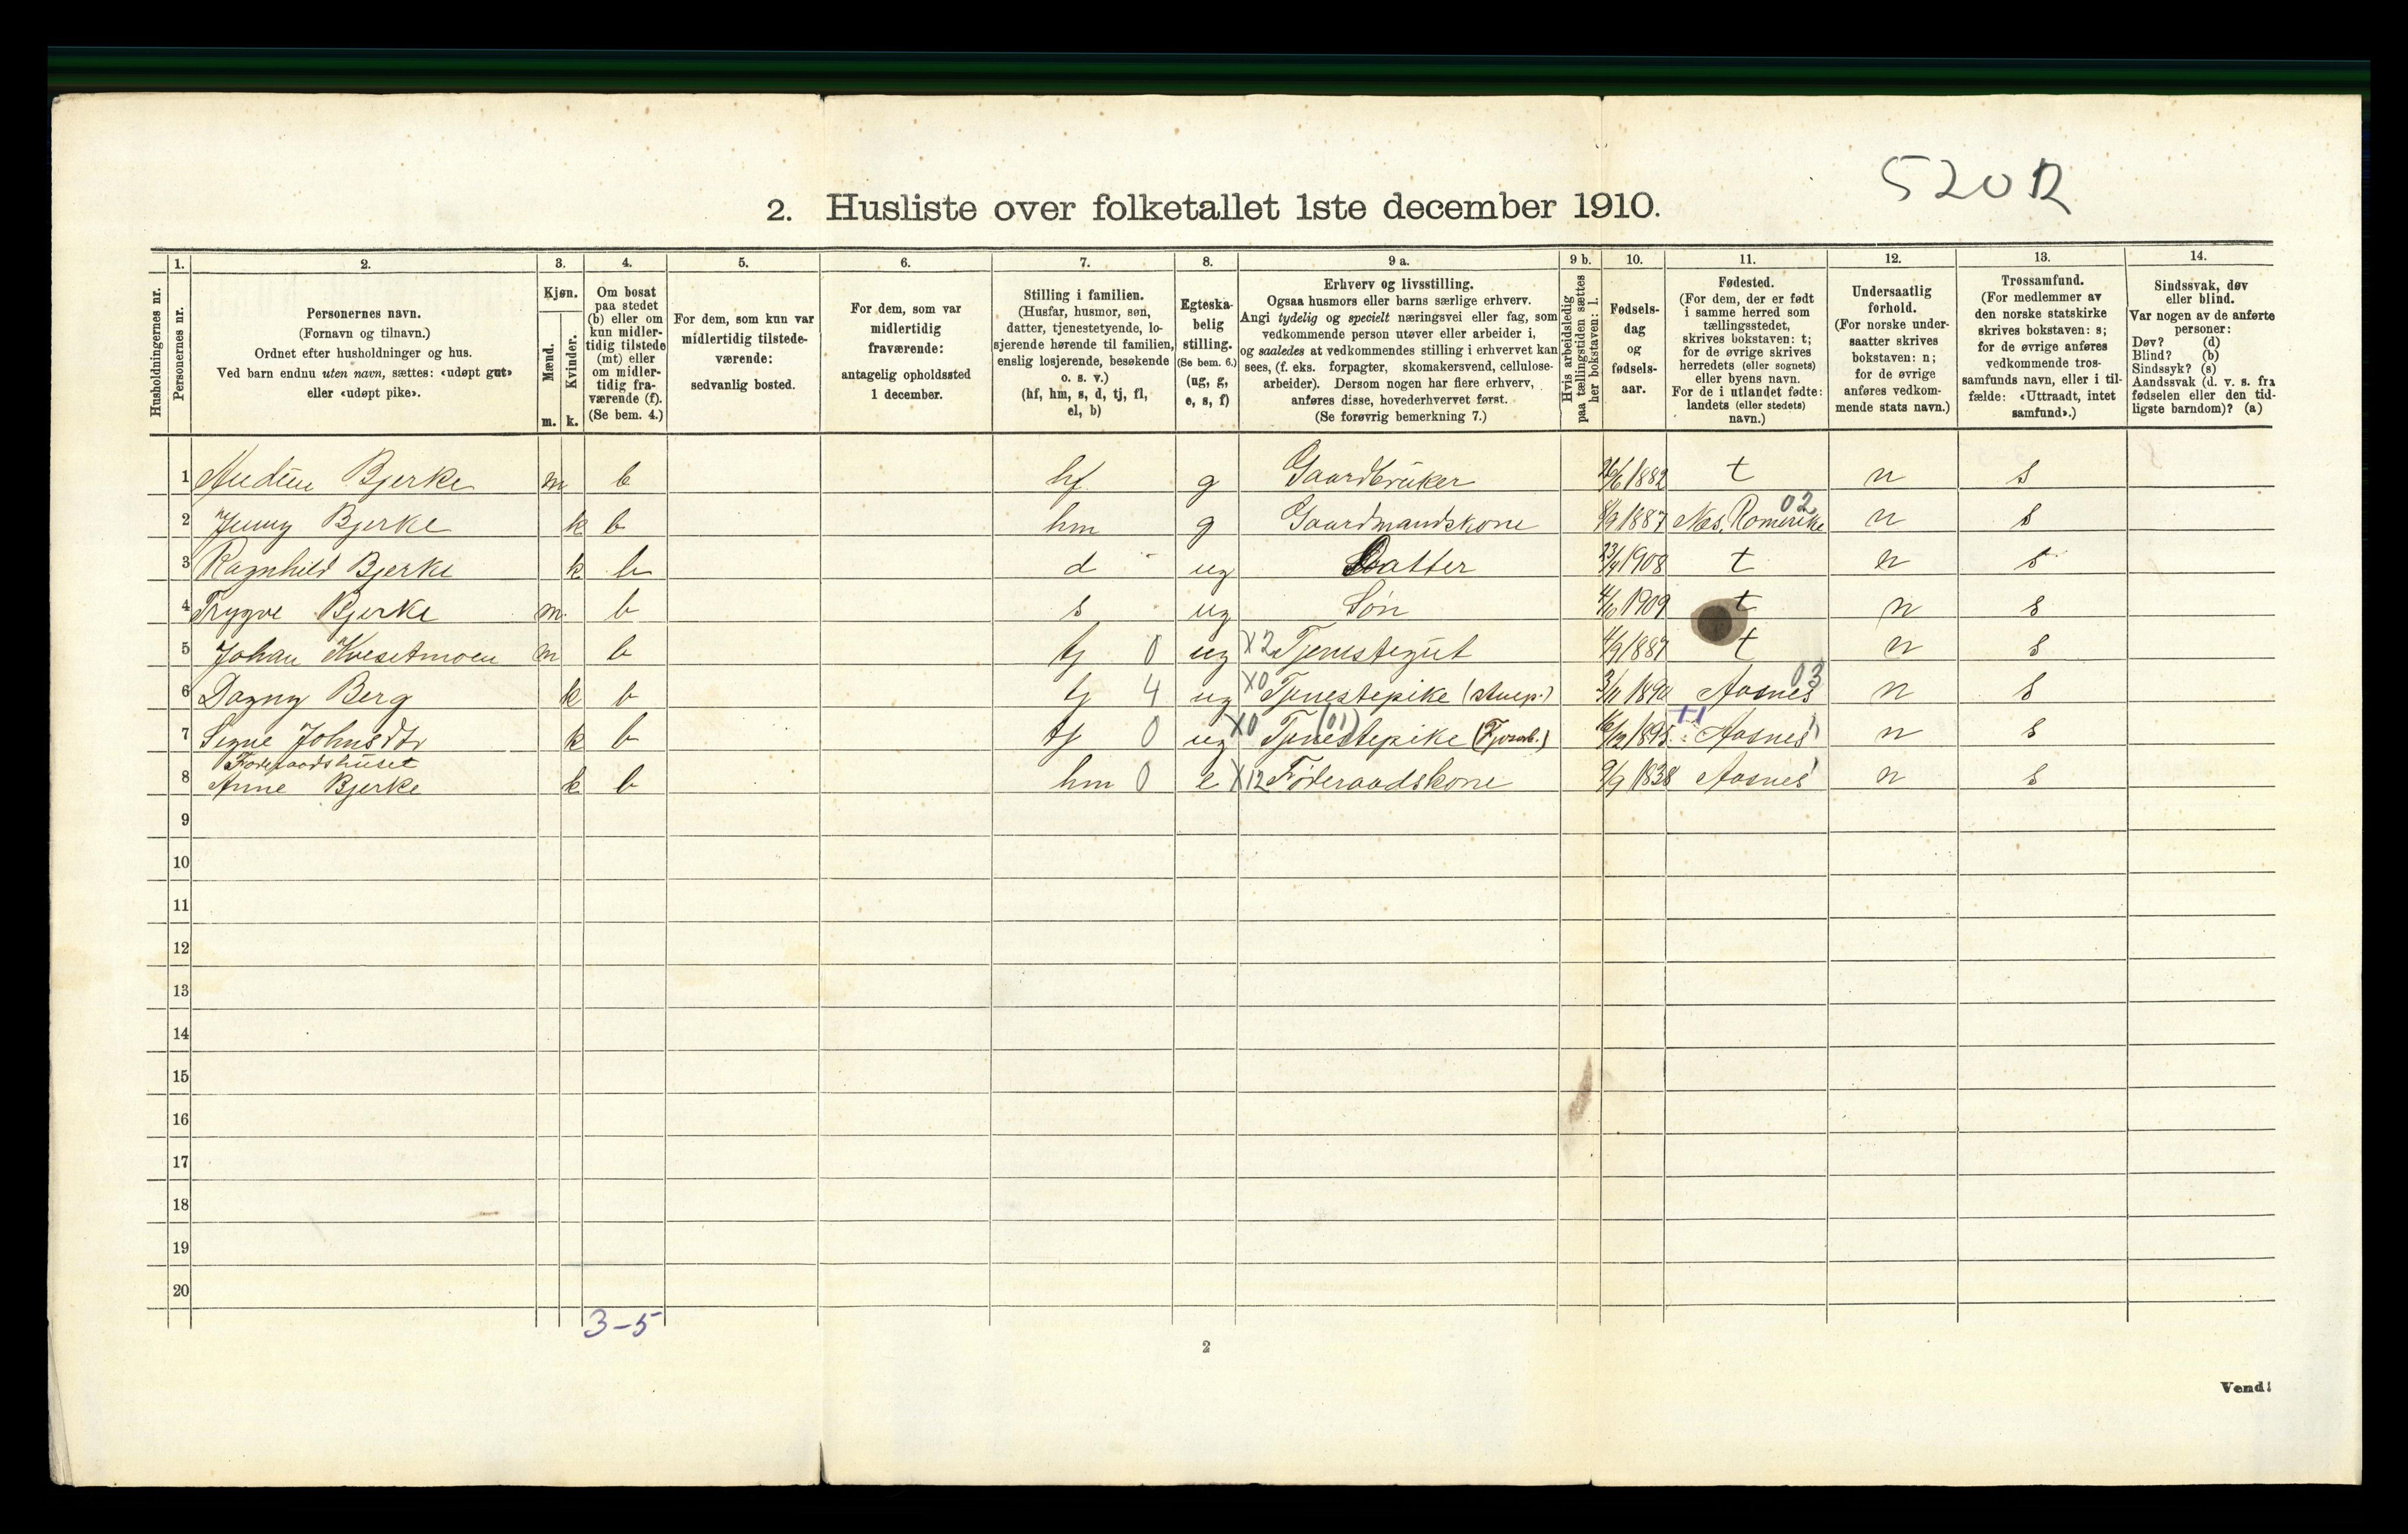 520
2. Husliste over folketallet 1ste december 1910.
Husholdningernes nr.
1. Personernes nr.
2. Personernes navn.
(Fornavn og tilnavn.)
Ordnet efter husholdninger og hus.
Ved barn endnu uten navn, sættes: «udøpt gut»
eller «udøpt pike».
3. Kjøn.
Mænd. m.
Kvinder. k.
4. Om bosat
paa stedet
(b) eller om
kun midler-
tidig tilstede
(mt) eller
om midler-
tidig fra-
værende (f).
(Se bem. 4.)
5. For dem, som kun var
midlertidig tilstede-
værende:
sedvanlig bosted.
6. For dem, som var
midlertidig
fraværende:
antagelig opholdssted
1 december.
7. Stilling i familien.
(Husfar, husmor, søn,
datter, tjenestetyende, lo-
sjerende hørende til familien,
enslig losjerende, besøkende
o. s. v.)
(hf, hm, s, d, tj, fl,
el, b)
8. Egteska-
belig
stilling.
(Se bem. 6.)
(ug, g,
e, s, f)
9 a. Erhverv og livsstilling.
Ogsaa husmors eller barns særlige erhverv.
Angi tydelig og specielt næringsvei eller fag, som
vedkommende person utøver eller arbeider i,
og saaledes at vedkommendes stilling i erhvervet kan
sees, (f. eks. forpagter, skomakersvend, cellulose-
arbeider). Dersom nogen har flere erhverv,
anføres disse, hovederhvervet først.
(Se forøvrig bemerkning 7.)
9 b. Hvis arbeidsledig
paa tællingstiden sættes
her bokstaven: l.
10. Fødsels-
dag
og
fødsels-
aar.
11. Fødested.
(For dem, der er født
i samme herred som
tællingsstedet,
skrives bokstaven: t;
for de øvrige skrives
herredets (eller sognets)
eller byens navn.
For de i utlandet fødte:
landets (eller stedets)
navn.)
12. Undersaatlig
forhold.
(For norske under-
saatter skrives
bokstaven: n;
for de øvrige
anføres vedkom-
mende stats navn.)
13. Trossamfund.
(For medlemmer av
den norske statskirke
skrives bokstaven: s;
for de øvrige anføres
vedkommende tros-
samfunds navn, eller i til-
fælde: «Uttraadt, intet
samfund».)
14. Sindssvak, døv
eller blind.
Var nogen av de anførte
personer:
Døv? (d)
Blind? (b)
Sindssyk? (s)
Aandssvak (d. v. s. fra
fødselen eller den tid-
ligste barndom)? (a)
1 Bjerke m b hf g Gaardbruker 26/6 1882 t n s
2 Jenny Bjerke k b hm g Gaardmandskone 1887 Nes. Romerike 02 n s
3 Ragnhild Bjerke k b d ug Datter 1908 t n s
4 Trygve Bjerke m b s ug Søn 4/10 1909 t n s
5 Johan Kvesetmoen m b tj 0 ug X2 Tjenestegut 4/9 1887 t n s
6 Dagny Berg k b tj 4 ug X0 Tjenestepike (stuep.) 3/11 1890 Aasnes 03 n s
7 Signe Johnsdtr k b tj 0 ug X0 Tjenestepike (01) 16/12 1895 Aasnes n s
Føderaadshuset
8 Anne Bjerke k b hm 0 e X12 Føderaadskone 9/9 1838 Aasnes n s
9
10
11
12
13
14
15
16
17
18
19
20
3-5
2
Vend!